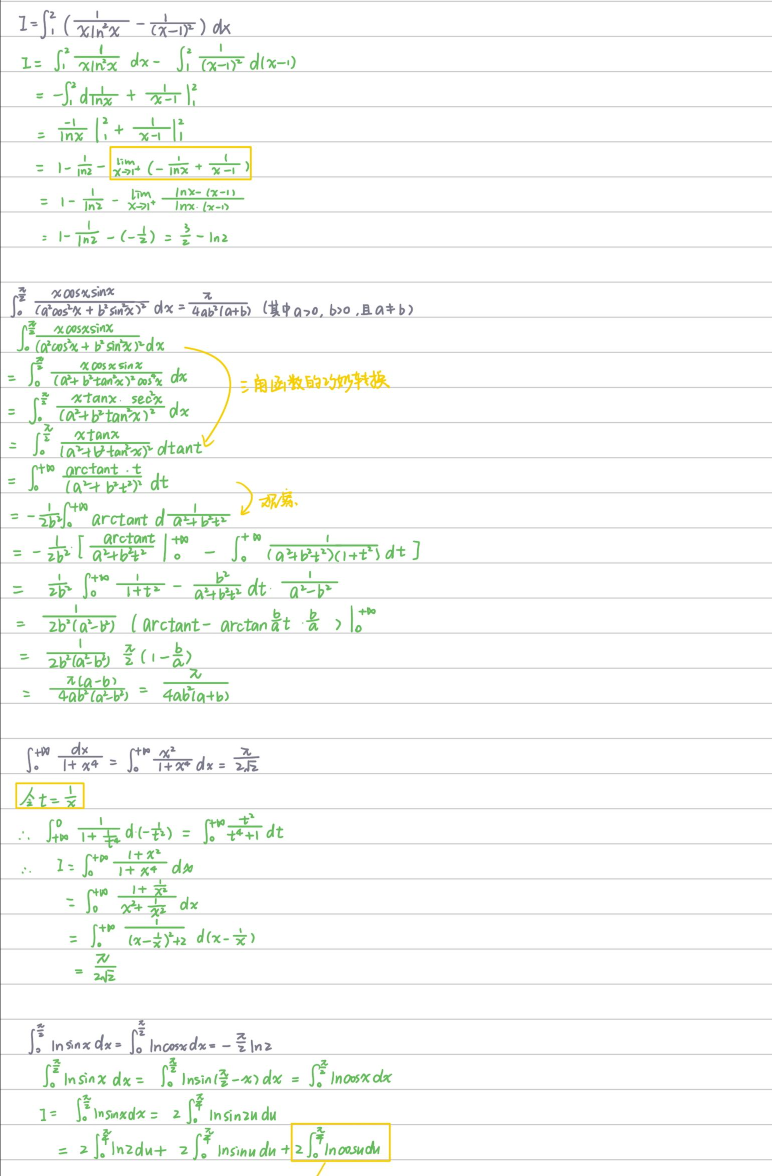 I=∫₁² ( 1/(xln²x) - 1/(x-1)² ) dx
I= ∫₁² 1/(xln²x) dx - ∫₁² 1/(x-1)² d(x-1)
= -∫₁² d 1/lnx + 1/(x-1) |₁²
= -1/lnx |₁² + 1/(x-1) |₁²
= 1 - 1/ln2 - lim x→1⁺ (- 1/lnx + 1/(x-1))
= 1 - 1/ln2 - lim x→1⁺ (lnx-(x-1))/(lnx·(x-1))
= 1 - 1/ln2 - (-1/2) = 3/2 - ln2
∫₀^(π/2) xcosxsinx/(a²cos²x + b²sin²x)² dx = π/(4ab²(a+b)) (其中a>0, b>0,且a≠b)
∫₀^(π/2) xcosxsinx/(a²cos²x + b²sin²x)² dx
= ∫₀^(π/2) xcosxsinx/((a²+b²tan²x)²cos⁴x) dx 三角函数的巧妙转换
= ∫₀^(π/2) xtanx·sec²x/(a²+b²tan²x)² dx
= ∫₀^(π/2) xtanx/(a²+b²tan²x)² dtant
= ∫₀^(+∞) arctant·t/(a²+b²t²)² dt
观察
= -1/(2b²) ∫₀^(+∞) arctant d 1/(a²+b²t²)
= -1/(2b²)·[ arctant/(a²+b²t²) |₀^(+∞) - ∫₀^(+∞) 1/((a²+b²t²)(1+t²)) dt ]
= 1/(2b²) ∫₀^(+∞) 1/(1+t²) - b²/(a²+b²t²) dt· 1/(a²-b²)
= 1/(2b²(a²-b²)) (arctant - arctan b/a t · b/a ) |₀^(+∞)
= 1/(2b²(a²-b²)) π/2 (1 - b/a)
= π(a-b)/(4ab²(a²-b²)) = π/(4ab²(a+b))
∫₀^(+∞) dx/(1+x⁴) = ∫₀^(+∞) x²/(1+x⁴) dx = π/(2√2)
令t = 1/x
∴ ∫₊∞^0 1/(1+1/t⁴) d(-1/t²) = ∫₀^(+∞) t²/(t⁴+1) dt
∴ I = ∫₀^(+∞) (1+x²)/(1+x⁴) dx
= ∫₀^(+∞) (1+1/x²)/(x²+1/x²) dx
= ∫₀^(+∞) 1/((x-1/x)²+2) d(x-1/x)
= π/(2√2)
∫₀^(π/2) lnsinx dx = ∫₀^(π/2) lncosx dx = -π/2 ln2
∫₀^(π/2) lnsinx dx = ∫₀^(π/2) lnsin(π/2-x) dx = ∫₀^(π/2) lncosx dx
I = ∫₀^(π/2) lnsinxdx = 2∫₀^(π/4) lnsin2u du
= 2∫₀^(π/4) ln2du + 2∫₀^(π/4) lnsinu du + 2∫₀^(π/4) lncosudu